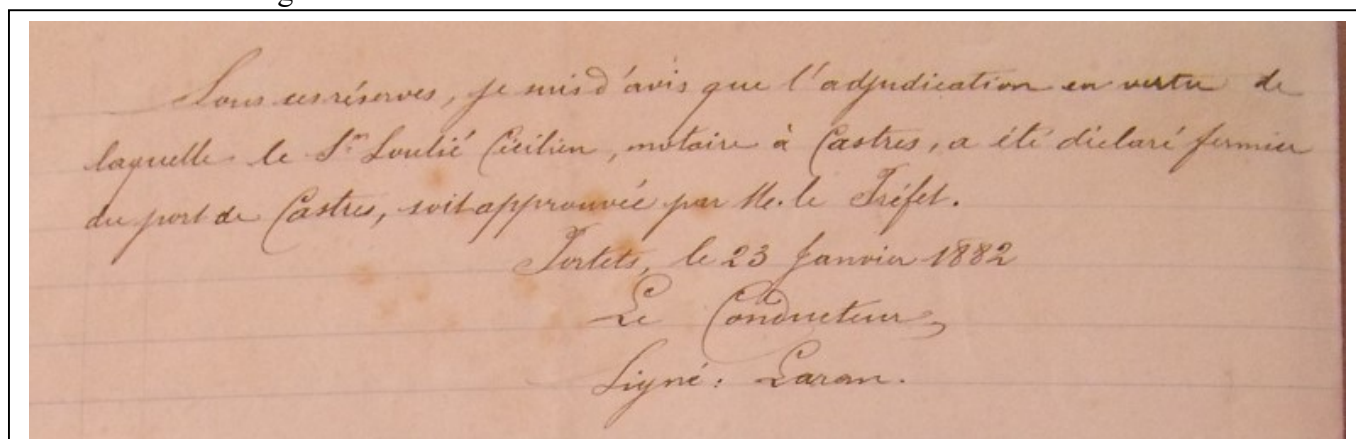 Sous ces réserves, je suis d'avis que l'adjudication en vertu de
laquelle le Sr Soulié Cécilien, notaire à Castres, a été déclaré fermier
du port de Castres, soit approuvée par M. le Préfet.
Portets, le 23 Janvier 1882
Le Conducteur,
Signé : Laran.